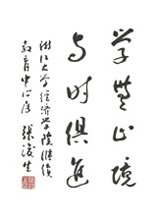 学无止境
与时俱进
浙江大学经济学院继续
教育中心存 张浚生